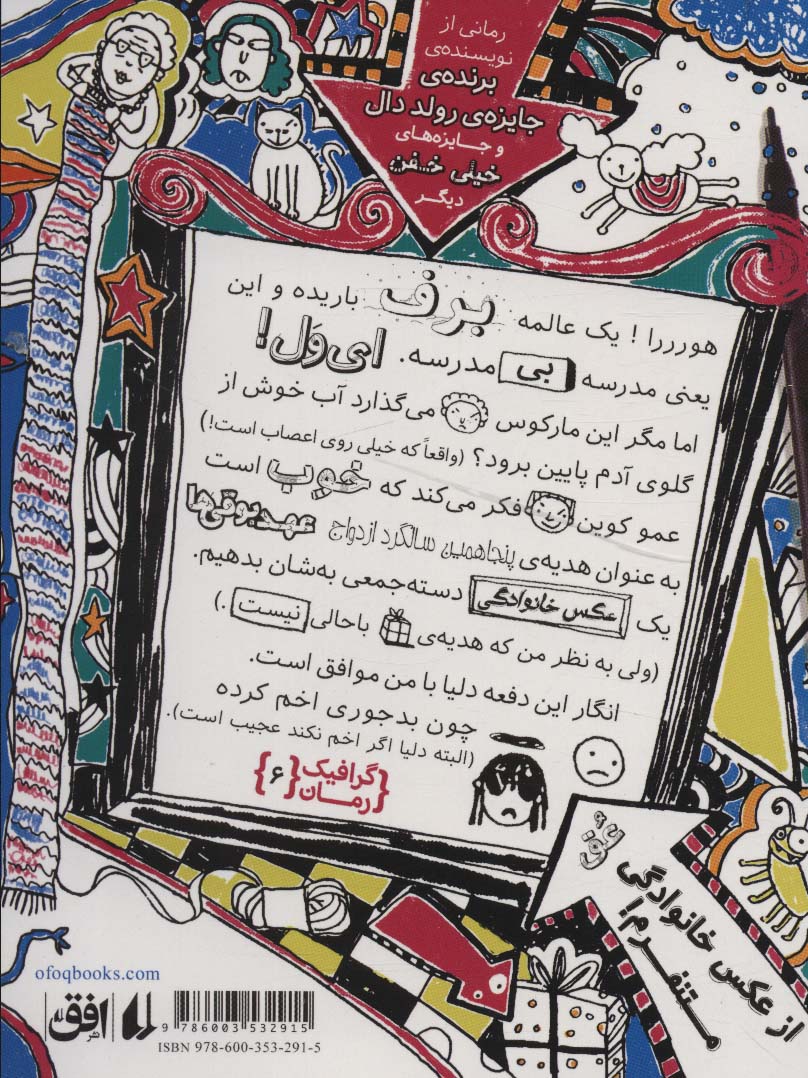 رمانی از
نویسنده‌ی
برنده‌ی
جایزه‌ی رولد دال
و جایزه‌های
خیلی خفن
دیگر
هوررررا ! یک عالمه برف باریده و این
یعنی مدرسه بی مدرسه. ای وَل!
اما مگر این مارکوس می‌گذارد آب خوش از
گلوی آدم پایین برود؟ (واقعاً که خیلی روی اعصاب است!)
عمو کوین فکر می‌کند که خوب است
به عنوان هدیه‌ی پنجاهمین سالگرد ازدواج عهدبوقی‌ها
یک عکس خانوادگی دسته‌جمعی به‌شان بدهیم.
(ولی به نظر من که هدیه‌ی باحالی نیست .)
انگار این دفعه دلیا با من موافق است.
چون بدجوری اخم کرده
(البته دلیا اگر اخم نکند عجیب است).
گرافیک
رمان
{۶}
عق
از عکس خانوادگی
متنفرم!
ofoqbooks.com
نشر افق
9 786003 532915
ISBN 978-600-353-291-5